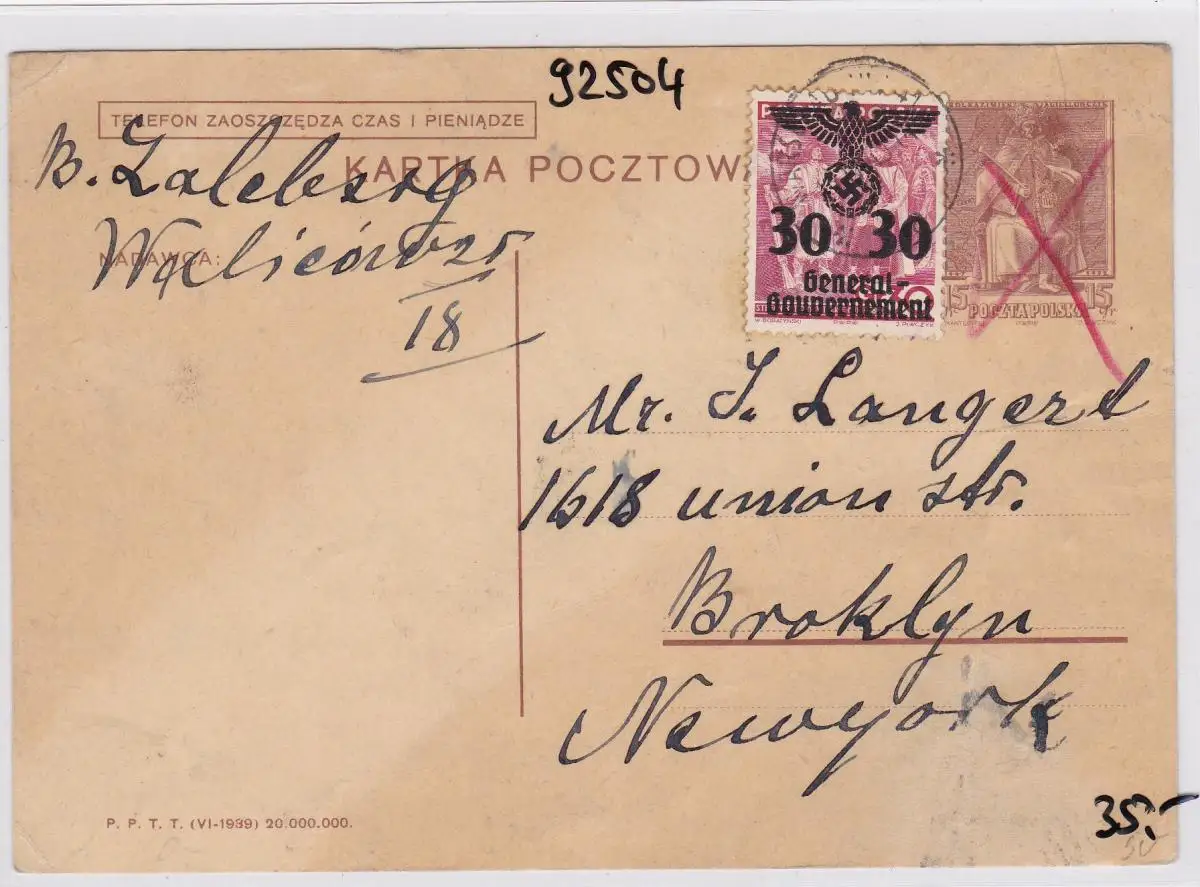 92504
TELEFON ZAOSZCZĘDZA CZAS I PIENIĄDZE
KARTKA POCZTOW
B. Zaleberg
NADAWCA:
Waliców
18
30 30
General-
Gouvernement
15 15
POCZTA POLSKA
Mr. J. Langert
1618 union str.
Broklyn
Newyork
P. P. T. T. (VI-1939) 20.000.000.
35.-
50